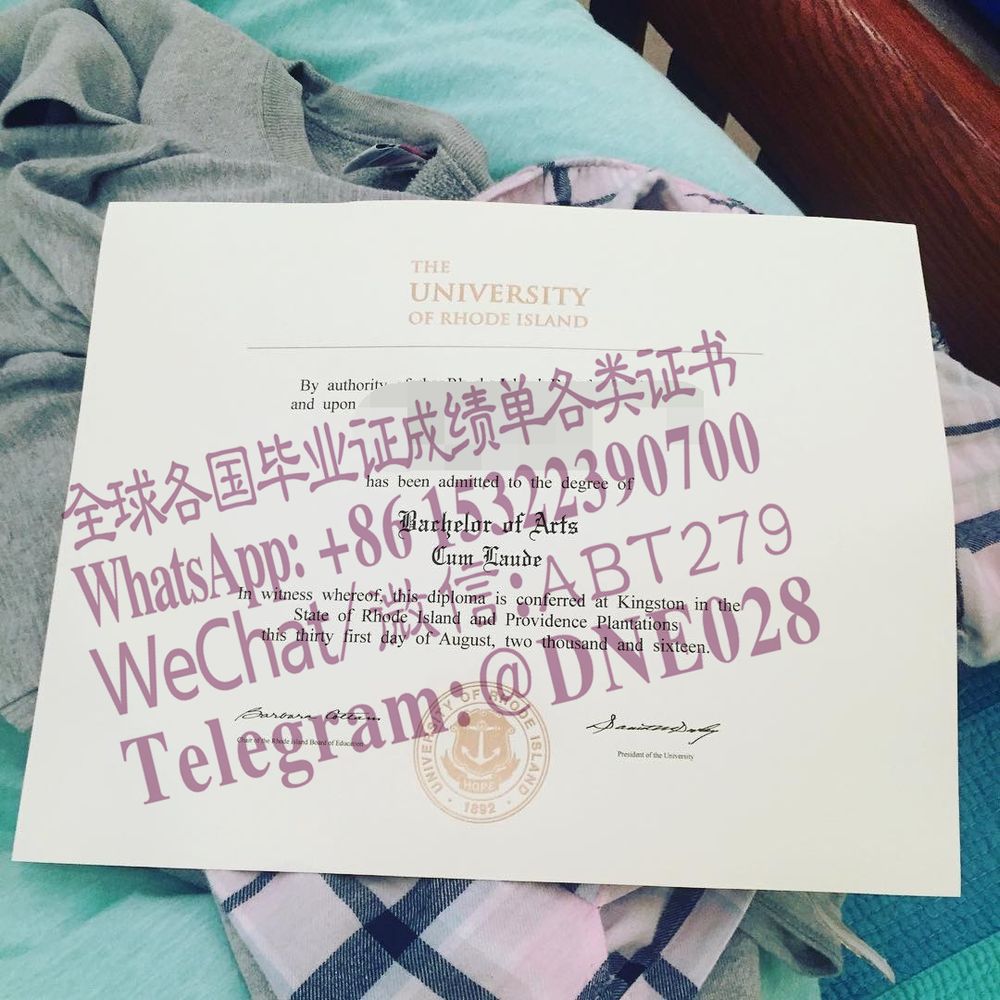 THE
UNIVERSITY
OF RHODE ISLAND
By authority
and upon
全球各国毕业证成绩单各类证书
has been admitted to the degree of
WhatsApp: +86 15322390700
Bachelor of Arts
Cum Laude
WeChat/微信:ABT279
In witness whereof, this diploma is conferred at Kingston in the
State of Rhode Island and Providence Plantations
this thirty first day of August, two thousand and sixteen.
Telegram:@DNE028
Chair of the Rhode Island Board of Education
President of the University
UNIVERSITY OF RHODE ISLAND
HOPE
1892